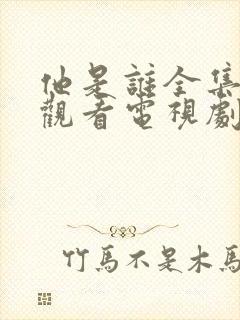 他是誰全集
觀看電視劇
竹馬不是木馬